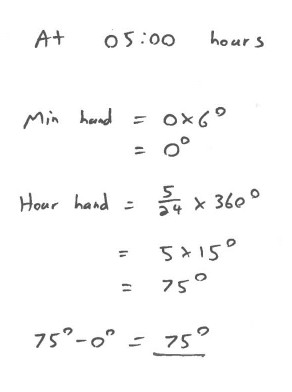 At 05:00 hours
Min hand = 0×6°
= 0°
Hour hand = 5/24 × 360°
= 5×15°
= 75°
75°-0° = 75°